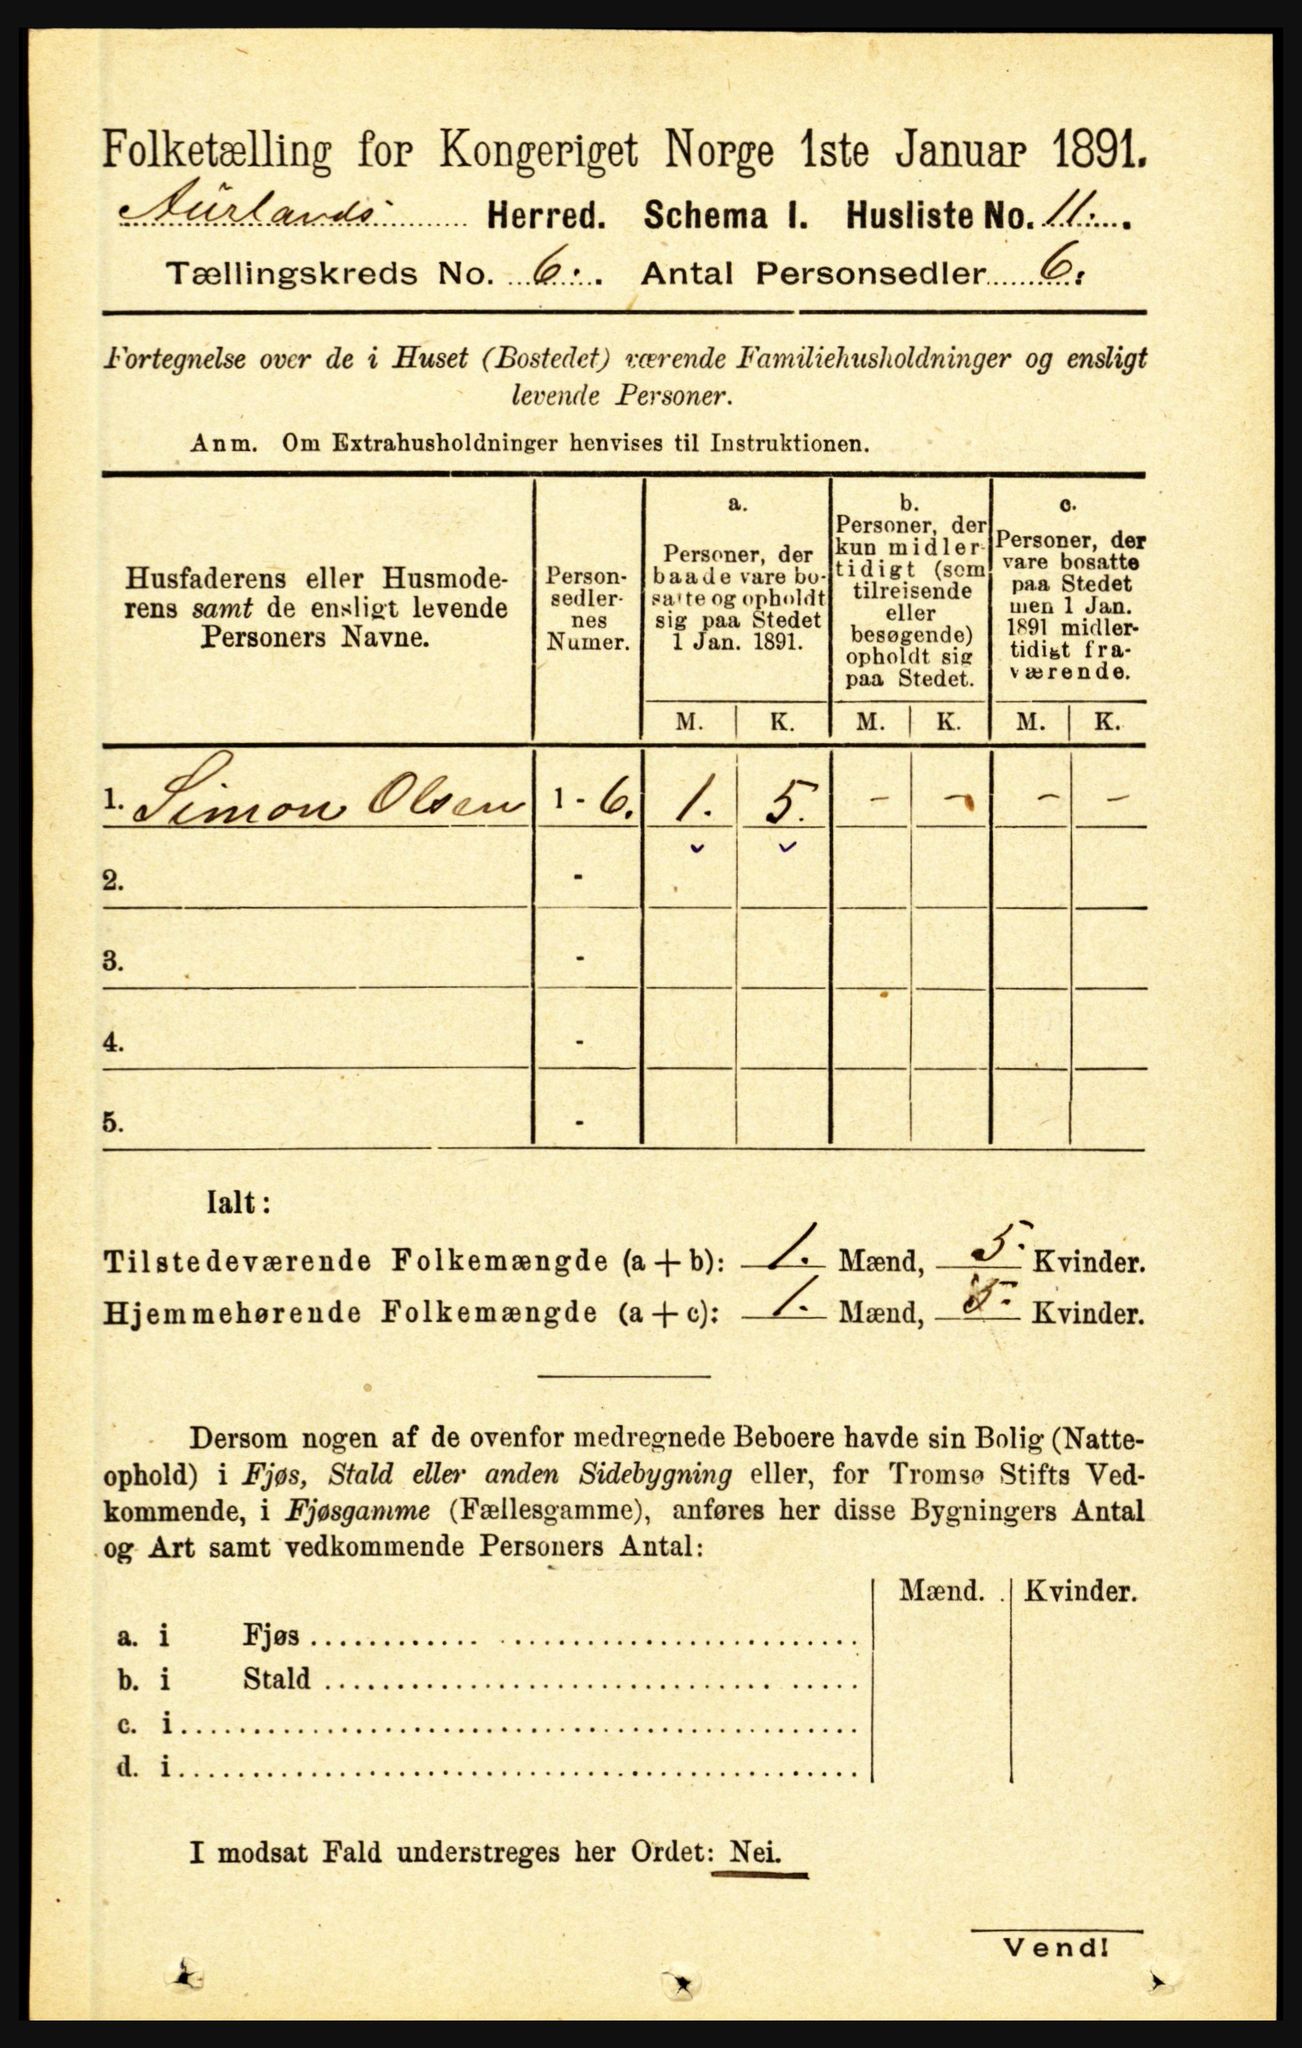 Folketælling for Kongeriget Norge 1ste Januar 1891.
Aurlands Herred. Schema I. Husliste No. 11.
Tællingskreds No. 6. Antal Personsedler 6.
Fortegnelse over de i Huset (Bostedet) værende Familiehusholdninger og ensligt
levende Personer.
Anm. Om Extrahusholdninger henvises til Instruktionen.
Husfaderens eller Husmode-
rens samt de ensligt levende
Personers Navne.
Person-
sedler-
nes
Numer.
a.
Personer, der
baade vare bo-
satte og opholdt
sig paa Stedet
1 Jan. 1891.
b.
Personer, der
kun midler-
tidigt (som
tilreisende
eller
besøgende)
opholdt sig
paa Stedet.
c.
Personer, der
vare bosatte
paa Stedet
men 1 Jan.
1891 midler-
tidigt fra-
værende.
M. K. M. K. M. K.
1. Simon Olsen 1 - 6. 1. 5. - - - -
2. -
3. -
4. -
5. -
Ialt:
Tilstedeværende Folkemængde (a + b): 1. Mænd, 5. Kvinder.
Hjemmehørende Folkemængde (a + c): 1. Mænd, 5. Kvinder.
Dersom nogen af de ovenfor medregnede Beboere havde sin Bolig (Natte-
ophold) i Fjøs, Stald eller anden Sidebygning eller, for Tromsø Stifts Ved-
kommende, i Fjøsgamme (Fællesgamme), anføres her disse Bygningers Antal
og Art samt vedkommende Personers Antal:
Mænd. Kvinder.
a. i Fjøs
b. i Stald
c. i
d. i
I modsat Fald understreges her Ordet: Nei.
Vend!